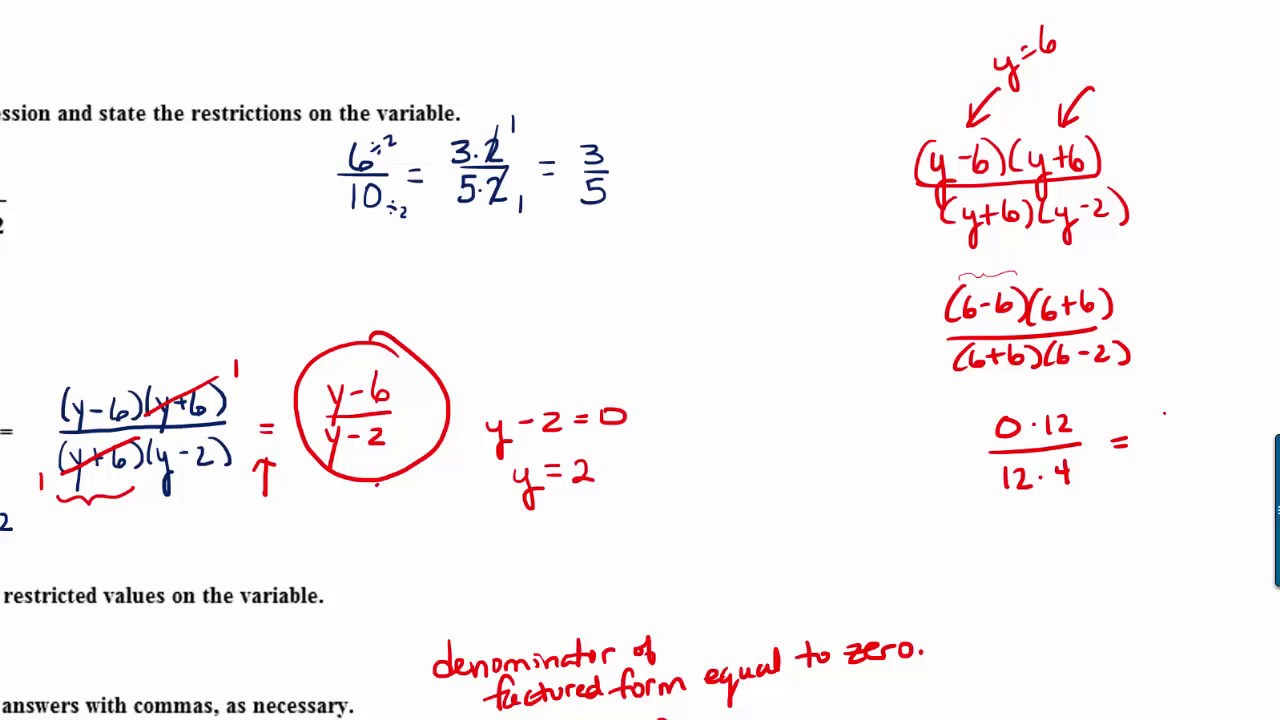 y=6
ession and state the restrictions on the variable.
6÷2/10÷2 = 3·2/5·2 = 3/5
1
1
(y-6)(y+6)
(y+6)(y-2)
2
(6-6)(6+6)
(6+6)(6-2)
= (y-6)(y+6)/(y+6)(y-2) = y-6/y-2
1
1
y-2=0
y=2
0·12/12·4 =
2
restricted values on the variable.
denominator of
factured form equal to zero.
answers with commas, as necessary.